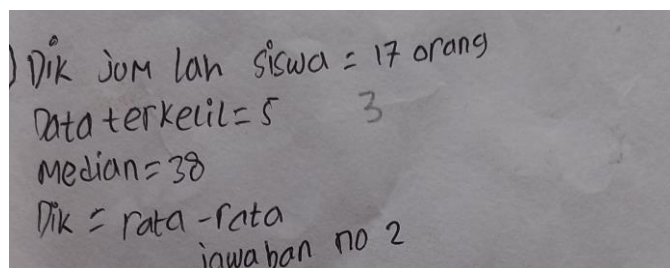 ) Dik jumlah siswa = 17 orang
Data terkecil = 5 3
Median = 38
Dik = rata-rata
jawaban no 2